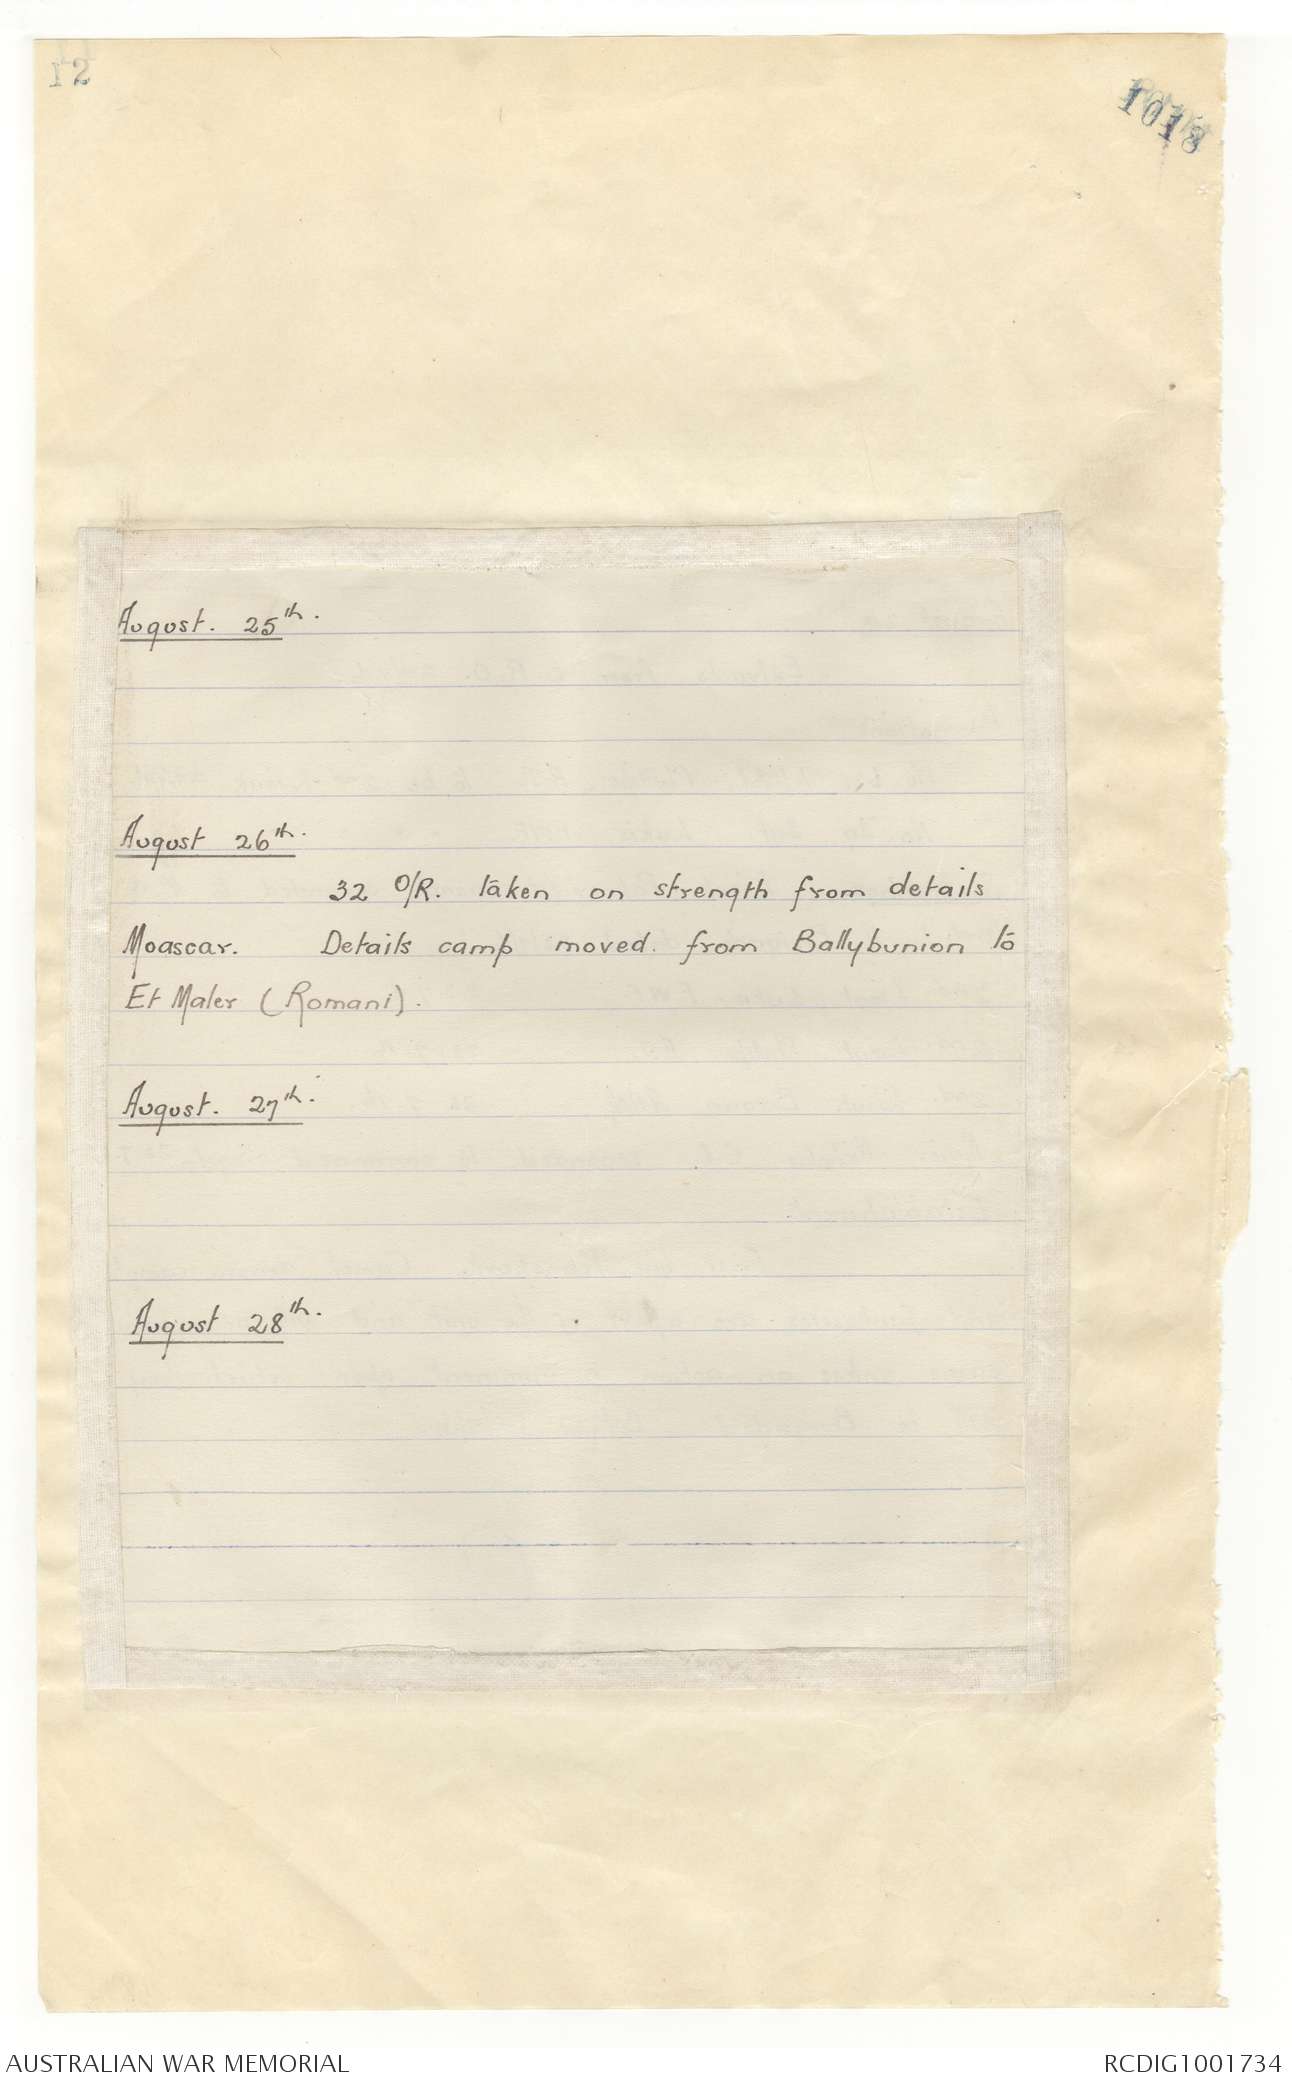 12
1018
August. 25th.
August 26th.
32 O/R. taken on strength from details
Moascar. Details camp moved. from Ballybunion to
Et Maler (Romani).
August. 27th.
August 28th.
AUSTRALIAN WAR MEMORIAL
RCDIG1001734